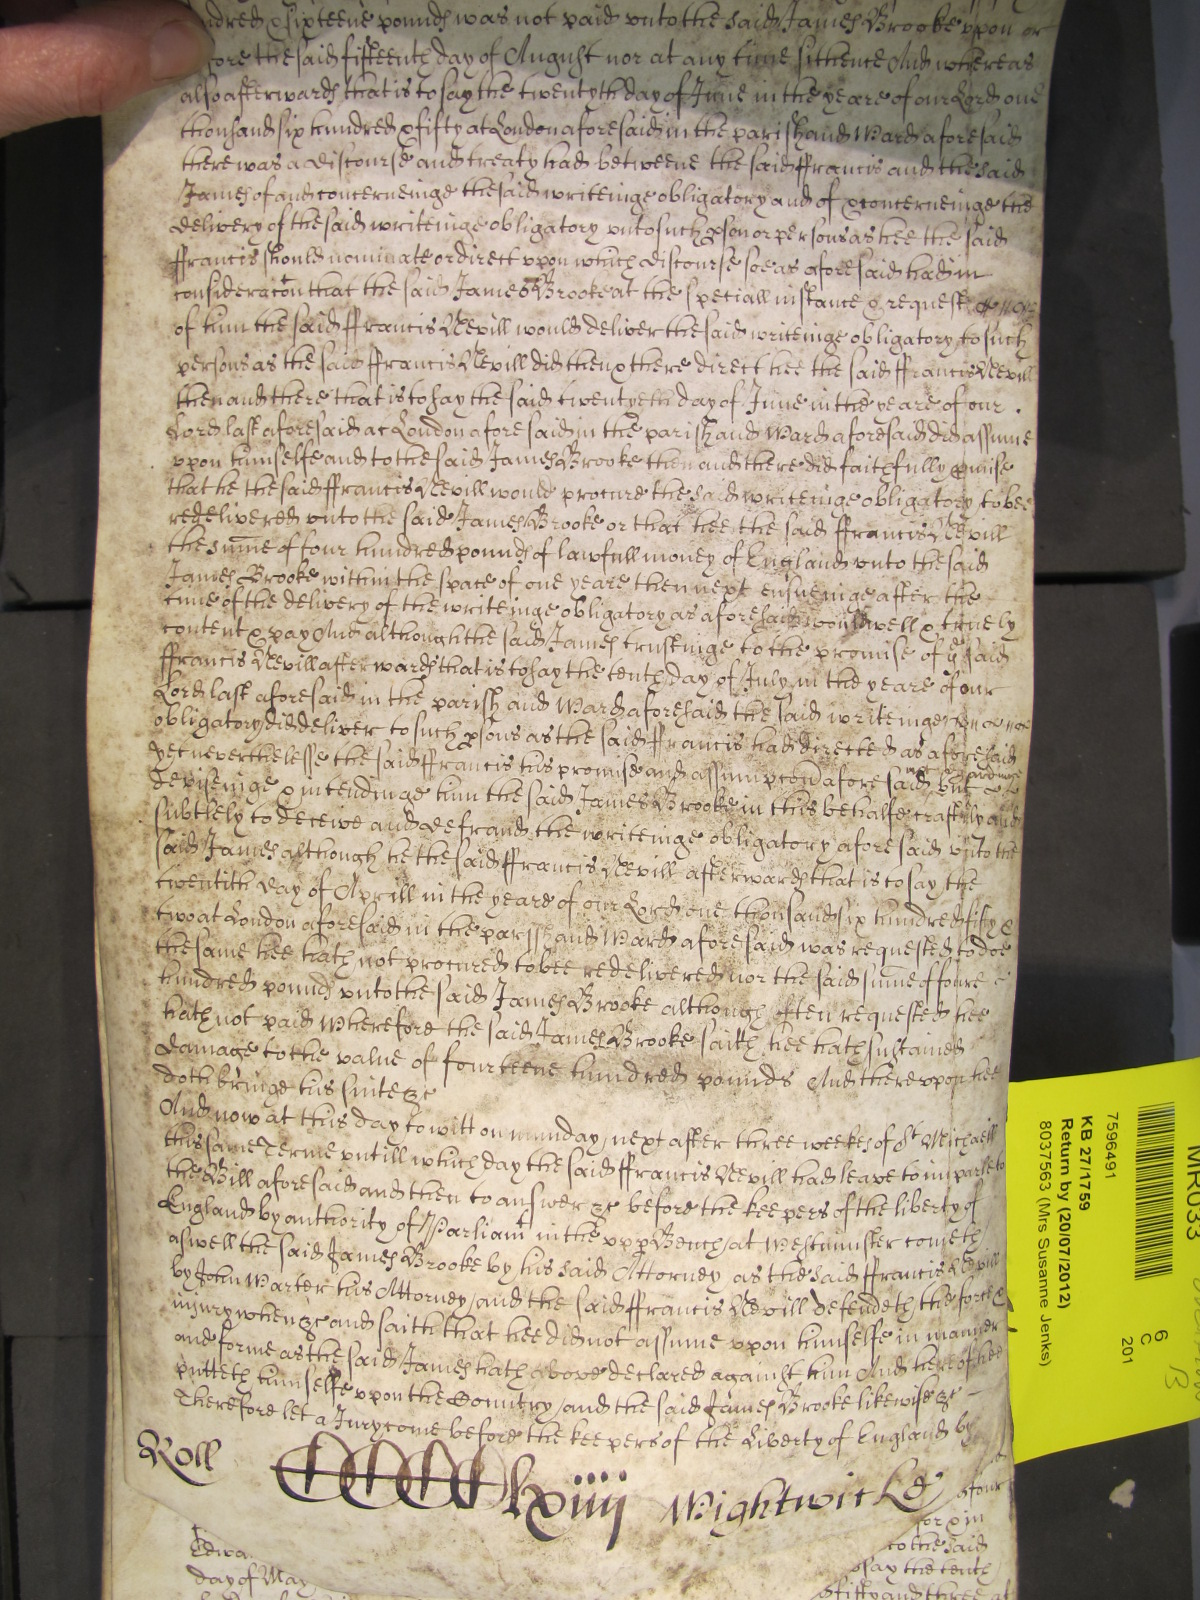 ndred & sixteene pounds was not paid unto the said James Brooke upon or
fore the said fifteenth day of August nor at any time sithence And whereas
also afterwards that is to say the twentyth day of June in the yeare of our Lord one
thousand six hundred & fifty at London aforesaid in the parish and Ward aforesaid
there was a discourse and treaty had betweene the said ffrancis and the said
James of and concerneinge the said writeinge obligatory and of & concerneinge the
delivery of the said writeinge obligatory unto such pson or persons as hee the said
ffrancis should nominate or direct upon which discourse soe as aforesaid had in
consideracon that the said James Brooke at the speciall instance & request
of him the said ffrancis Nevill would deliver the said writeinge obligatory to such
persons as the said ffrancis Nevill did then & there direct hee the said ffrancis Nevill
then and there that is to say the said twentyeth day of June in the yeare of our
Lord last aforesaid at London aforesaid in the parish and Ward aforesaid did assume
upon himselfe and to the said James Brooke then and there did faithfully pmise
that he the said ffrancis Nevill would procure the said writeinge obligatory to bee
redelivered unto the said James Brooke or that hee the said ffrancis Nevill
the sume of four hundred pounds of lawfull money of England unto the said
James Brooke within the space of one yeare then next ensueinge after the
time of the delivery of the writeinge obligatory as aforesaid would well & truely
content & pay And although the said James trustinge to the promise of ye said
ffrancis Nevill afterwards that is to say the tenth day of July in the yeare of our
Lord last aforesaid in the parish and Ward aforesaid the said writeinge
obligatory did deliver to such psons as the said ffrancis had directed as aforesaid
yet neverthelesse the said ffrancis his promise and assumpcon aforesaid but
deviseinge & intendinge him the said James Brooke in this behalfe craftily and
subtlely to deceive and defraud the writeinge obligatory aforesaid unto the
said James although he the said ffrancis Nevill afterwards that is to say the
twentith day of Aprill in the yeare of our Lord one thousand six hundred fifty &
two at London aforesaid in the parish and Ward aforesaid was requested to doe
the same hee hath not procured to bee redelivered nor the said sume of foure
hundred pounds unto the said James Brooke although often requested hee
hath not paid Wherefore the said James Brooke saith hee hath sustained
damage to the value of fourteene hundred pounds And thereupon hee
doth bringe his suite &c
And now at this day to witt on munday next after three weekes of St Michaell
this same Terme untill which day the said ffrancis Nevill had leave to imparle to
the Bill aforesaid and then to answer &c before the keepers of the liberty of
England by authority of Parliamt in the upp Bench at Westminster cometh
aswell the said James Brooke by his said Attorney as the said ffrancis Nevill
by John Warter his Attorney and the said ffrancis Nevill defendeth the force &
injury when &c and saith that hee did not assume upon himselfe in manner
and forme as the said James hath above declared against him And hereof hee
putteth himselfe upon the Countrey and the said James Brooke likewise &c
Therefore let a Jury come before the keepers of the Liberty of England by
Roll CCCClxiiij Wightwick
of our
or & in
Edwa
to the said
say the tenth
day of May
fifty and three at
7596491
KB 27/1759
Return by (20/07/2012)
8037563 (Mrs Susanne Jenks)
MR033
6
C
201